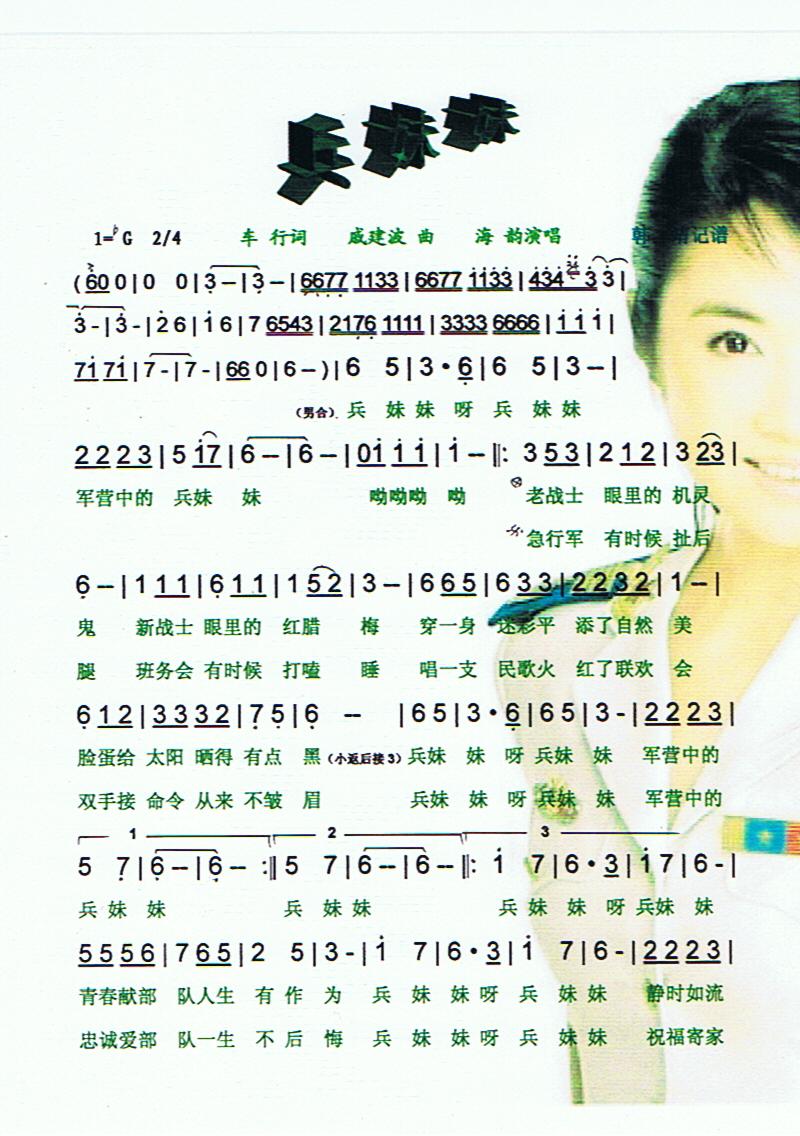 兵妹妹
1=♭G 2/4 车 行词 戚建波 曲 海 韵演唱 韩 记谱
(6̲0̲ 0 | 0 0 | 3 – | 3 – | 6677 1133 | 6677 1133 | 434 3 3 |
3 - | 3 - | 2 6 | 1 6 | 7 6543 | 2176 1111 | 3333 6666 | 1 1 1 |
71 71 | 7 - | 7 - | 66 0 | 6 – ) | 6 5 | 3 • 6 | 6 5 | 3 – |
（男合） 兵 妹 妹 呀 兵 妹 妹
2 2 2 3 | 5 17 | 6 – | 6 – | 01 1 1 | 1 – ‖: 3 5 3 | 2 1 2 | 3 23 |
军营中的 兵妹 妹 呦呦呦 呦 老战士 眼里的 机灵
急行军 有时候 扯后
6 – | 1 1 1 | 6 1 1 | 1 5 2 | 3 – | 6 6 5 | 6 3 3 | 2 2 3 2 | 1 – |
鬼 新战士 眼里的 红腊 梅 穿一身 迷彩平 添了自然 美
腿 班务会 有时候 打嗑 睡 唱一支 民歌火 红了联欢 会
6 1 2 | 3 3 3 2 | 7 5 | 6 – | 6 5 | 3 • 6 | 6 5 | 3 - | 2 2 2 3 |
脸蛋给 太阳 晒得 有点 黑（小返后接3）兵妹 妹 呀 兵妹 妹 军营中的
双手接 命令 从来 不皱 眉 兵妹 妹 呀 兵妹 妹 军营中的
1 2 3
5 7 | 6 – | 6 – :‖ 5 7 | 6 – | 6 – ‖: 1 7 | 6 • 3 | 1 7 | 6 - |
兵 妹 妹 兵 妹 妹 兵 妹 妹 呀 兵妹 妹
5 5 5 6 | 7 6 5 | 2 5 | 3 - | 1 7 | 6 • 3 | 1 7 | 6 - | 2 2 2 3 |
青春献部 队人生 有 作 为 兵 妹 妹 呀 兵 妹 妹 静时如流
忠诚爱部 队一生 不 后 悔 兵 妹 妹 呀 兵 妹 妹 祝福寄家